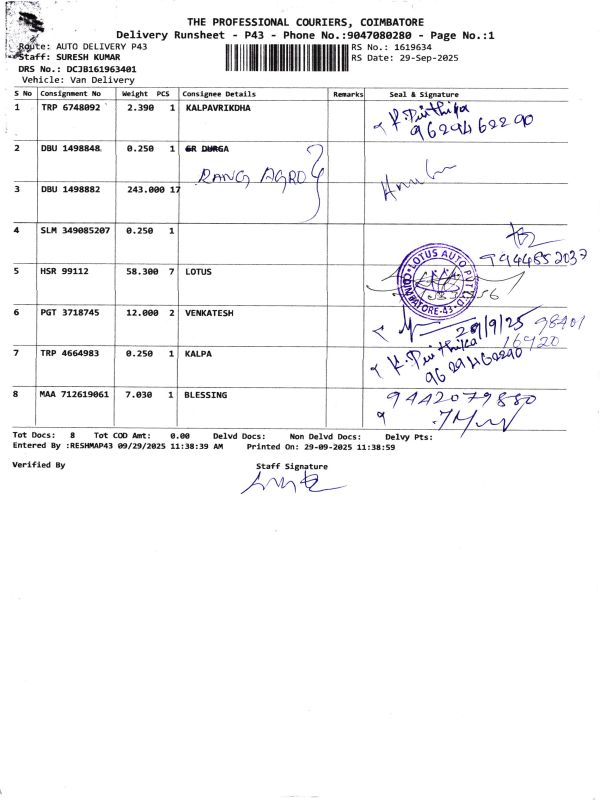 THE PROFESSIONAL COURIERS, COIMBATORE
Delivery Runsheet - P43 - Phone No.:9047080280 - Page No.:1
Route: AUTO DELIVERY P43 RS No.: 1619634
Staff: SURESH KUMAR RS Date: 29-Sep-2025
DRS No.: DCJB161963401
Vehicle: Van Delivery
S No Consignment No Weight PCS Consignee Details Remarks Seal & Signature
1 TRP 6748092 2.390 1 KALPAVRIKDHA
9629462290
2 DBU 1498848 0.250 1 GR DURGA
RANG AGRO
3 DBU 1498882 243.000 17
4 SLM 349085207 0.250 1
9944852037
LOTUS AUTO COIMBATORE-43
5 HSR 99112 58.300 7 LOTUS
6 PGT 3718745 12.000 2 VENKATESH
29/9/25 98401
16920
7 TRP 4664983 0.250 1 KALPA
9629462290
8 MAA 712619061 7.030 1 BLESSING
9442079880
Tot Docs: 8 Tot COD Amt: 0.00 Delvd Docs: Non Delvd Docs: Delvy Pts:
Entered By :RESHMAP43 09/29/2025 11:38:39 AM Printed On: 29-09-2025 11:38:59
Verified By Staff Signature